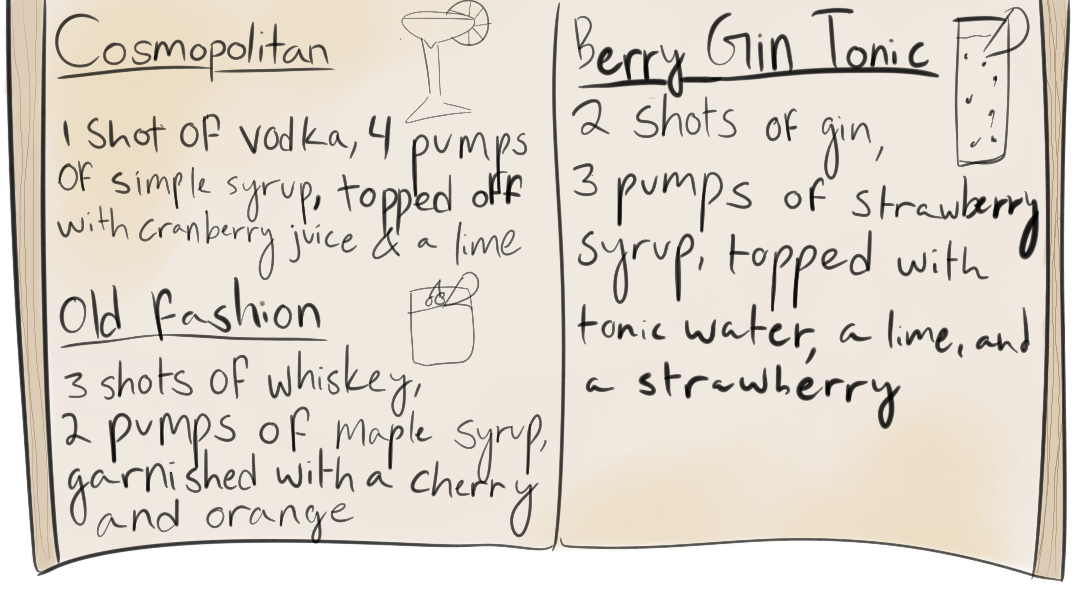 Cosmopolitan
1 shot of vodka, 4 pumps
of simple syrup, topped off
with cranberry juice & a lime
Old Fashion
3 shots of whiskey,
2 pumps of maple syrup,
garnished with a cherry
and orange
Berry Gin Tonic
2 shots of gin,
3 pumps of strawberry
syrup, topped with
tonic water, a lime, and
a strawberry